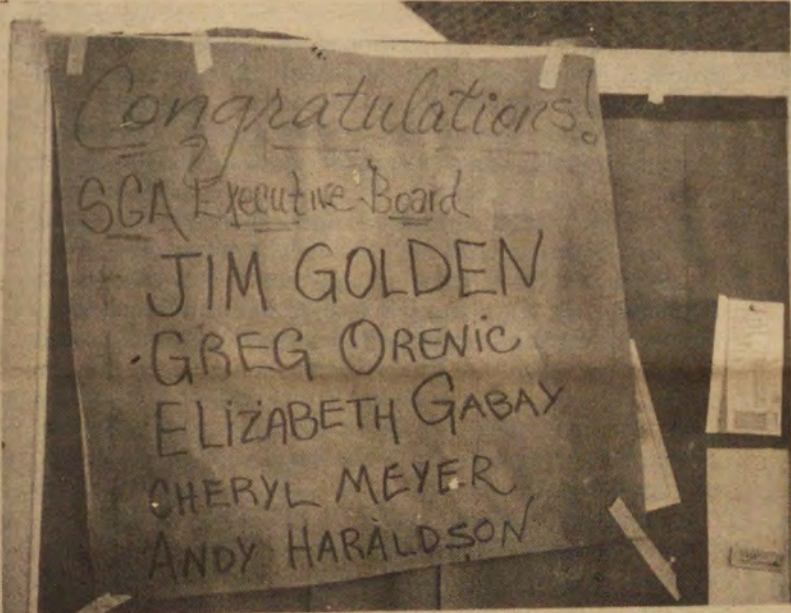 Congratulations!
SGA Executive Board
JIM GOLDEN
GREG ORENIC
ELIZABETH GABAY
CHERYL MEYER
ANDY HARALDSON